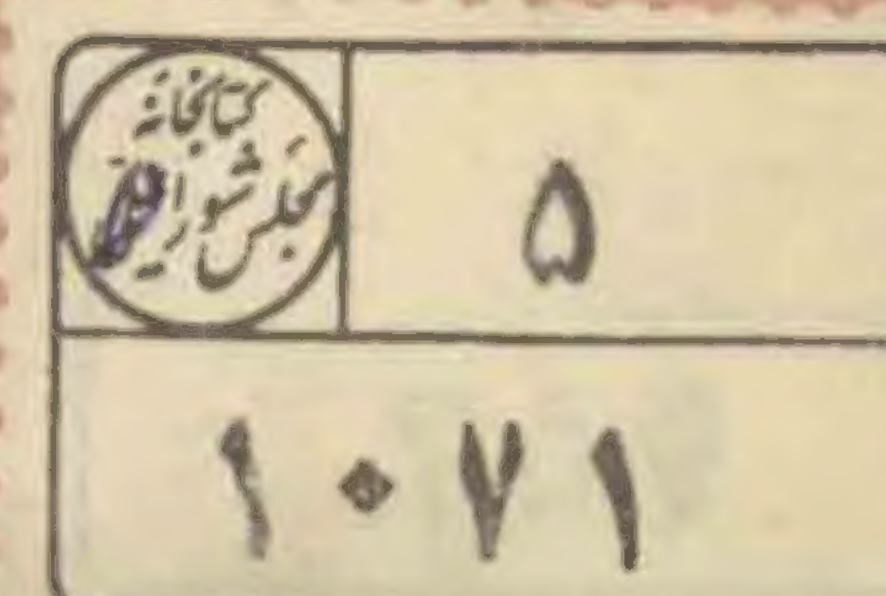 کتابخانه
مجلس شورای
۵
۱۰۷۱